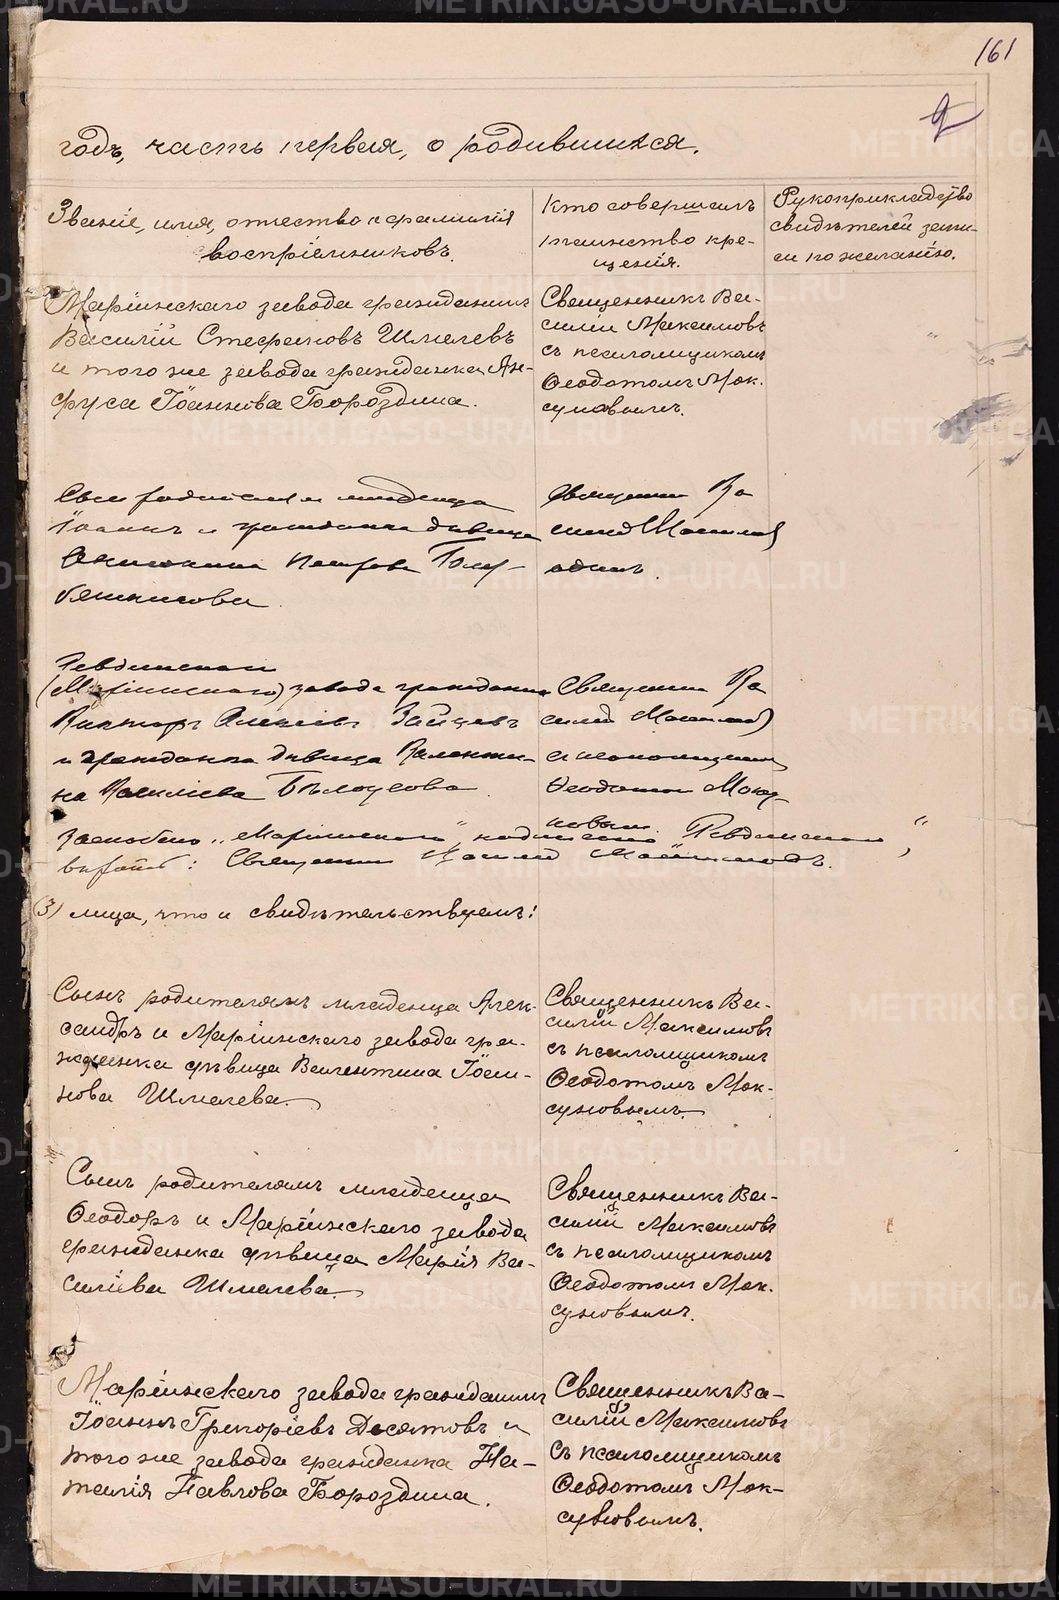 161
2
годъ, часть первая, о родившихся.
Званіе, имя, отчество и фамилія
воспріемниковъ.
Кто совершалъ
таинство кре-
щенія.
Рукоприкладство
свидѣтелей запи-
си по желанію.
Маріинскаго завода гражданинъ
Василій Стефановъ Шмелевъ
и того же завода гражданка Ан-
фуса Іоаннова Бороздина.
Священникъ Ва-
силій Максимовъ
съ псаломщикомъ
Ѳеодотомъ Мок-
суновымъ.
Сынъ родителямъ младенца
Іоаннъ и гражданка дѣвица
Петрова Голу-
бятникова.
Священник Ва
силій Максимов
один.
Ревдинскаго
(Маріинскаго) завода гражданин
Викторъ Алексѣев Зайцевъ
и гражданка дѣвица Валенти-
на Василіева Бѣлоусова
Священник Ва
силій Максимов
с псаломщиком
Ѳеодотом Моксу-
новым.
Зачеркнуто „Маріинскаго" надписано „Ревдинскаго"
вѣрить: Священник Василій Максимовъ.
(3) лица, что и свидѣтельствуемъ:
Сынъ родителямъ младенца Алек-
сандръ и Маріинскаго завода гра-
жданка дѣвица Валентина Іоан-
нова Шмелева.
Священникъ Ва-
силій Максимовъ
съ псаломщикомъ
Ѳеодотомъ Мок-
суновымъ.
Сынъ родителямъ младенца
Ѳеодоръ и Маріинскаго завода
гражданка дѣвица Марія Ва-
силіева Шмелева.
Священникъ Ва-
силій Максимовъ
съ псаломщикомъ
Ѳеодотомъ Мок-
суновымъ.
Маріинскаго завода гражданинъ
Іоаннъ Григоріевъ Десятовъ и
того же завода гражданка На-
талія Павлова Бороздина.
Священникъ Ва-
силій Максимовъ
съ псаломщикомъ
Ѳеодотомъ Мок-
суновымъ.
METRIKI.GASO-URAL.RU